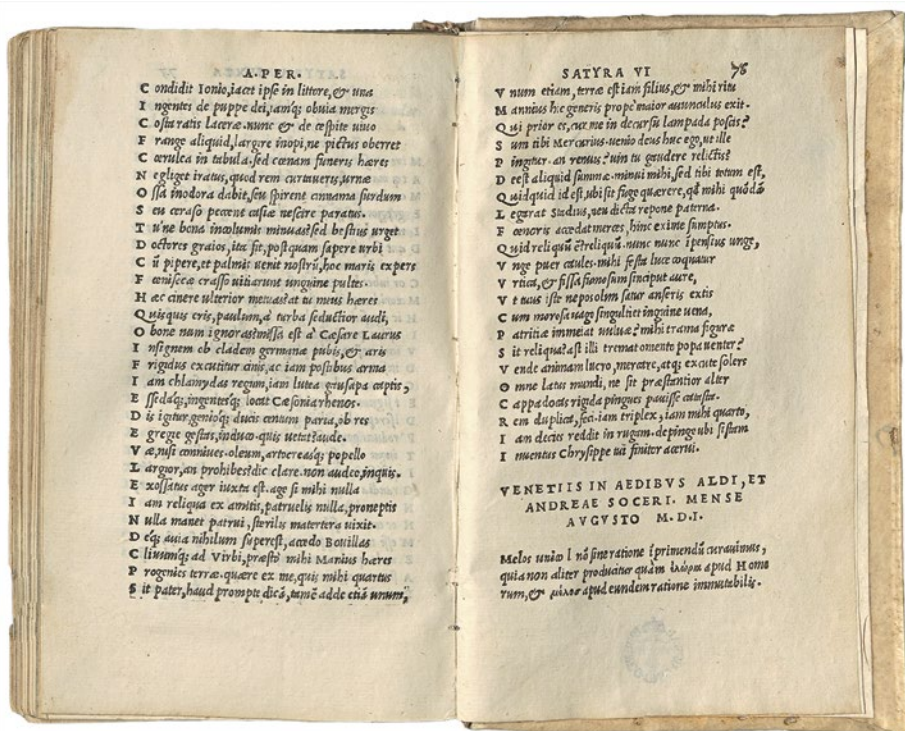 A. PER.
C ondidit Ionio, iacet ipse in littore, & una
I ngentes de puppe dei, iamq; obuia mergis
C osta ratis laceræ. nunc & de cespite uiuo
F range aliquid, largire inopi, ne pictus oberret
C œrulea in tabula. sed cœnam funeris hæres
N egliget iratus, quod rem curtaueris, urnæ
O ssa inodora dabit, seu spirent cinnama surdum
S eu ceraso peccent casiæ nescire paratus.
T u ne bona incolumis minuas? sed bestius urget
D octores graios, ita fit, postquam sapere urbi
C ũ pipere, et palmis uenit nostrũ, hoc maris expers
F œniseccæ crasso uitiarunt unguine pultes.
H æc cinere ulterior metuas? at tu meus hæres
Q uisquis eris, paulum, à turba seductior audi,
O bone num ignoras? missa est à Cæsare Laurus
I nsignem ob cladem germanæ pubis, & aris
F rigidus excutitur cinis, ac iam postibus arma
I am chlamydas regum, iam lutea gausapa captis,
E ssedaq;, ingentesq; locat Cæsonia rhenos.
D is igitur, genioq; ducis centum paria, ob res
E gregie gestas, induco. quis uetat? aude.
V æ, nisi conniues. oleum, artocreasq; popello
L argior, an prohibes? dic clare. non audeo, inquis.
E xossatus ager iuxta est. age si mihi nulla
I am reliqua ex amitis, patruelis nulla, proneptis
N ulla manet patrui, sterilis matertera uixit.
D eq; auia nihilum superest, accedo Bouillas
C liuumq; ad Virbi, præsto mihi Manius hæres
P rogenies terræ. quære ex me, quis mihi quartus
S it pater, haud prompte dicã, tamẽ adde etiã unum,
SATYRA VI 78
V num etiam, terræ est iam filius, & mihi ritu
M annius hic generis prope maior auunculus exit.
Q ui prior es, cur me in decursu lampada poscis?
S um tibi Mercurius. uenio deus huc ego, ut ille
P ingitur. an renuis? uin tu gaudere relictis?
D eest aliquid summæ. minui mihi, sed tibi totum est,
Q uidquid id est, ubi sit fuge quærere, qđ mihi quõdã
L egerat Stadius, neu dicta repone paterna.
F œnoris accedat merces, hinc exime sumptus.
Q uid reliquũ est? reliquũ. nunc nunc ĩpensius unge,
V nge puer caules. mihi festa luce coquatur
V rtica, & fissa fumosum sinciput aure,
V t tuus iste nepos olim satur anseris extis
C um morosa uago singultiet inguine uena,
P atritiæ immeiat uuluæ? mihi trama figuræ
S it reliqua? ast illi tremat omento popa uenter?
V ende animam lucro, mercare, atq; excute solers
O mne latus mundi, ne sit præstantior alter
C appadocas rigida pingues pauisse catasta.
R em duplica, feci. iam triplex, iam mihi quarto,
I am decies redit in rugam. depinge ubi sistam
I nuentus Chrysippe tui finitor acerui.
VENETIIS IN AEDIBVS ALDI, ET
ANDREAE SOCERI. MENSE
AVGVSTO M. D. I.
Melos unico l nõ sine ratione ĩprimendũ curauimus,
quia non aliter producitur quàm ἱλώρια apud Home
rum, & μέλος apud eundem ratione immutabilis.